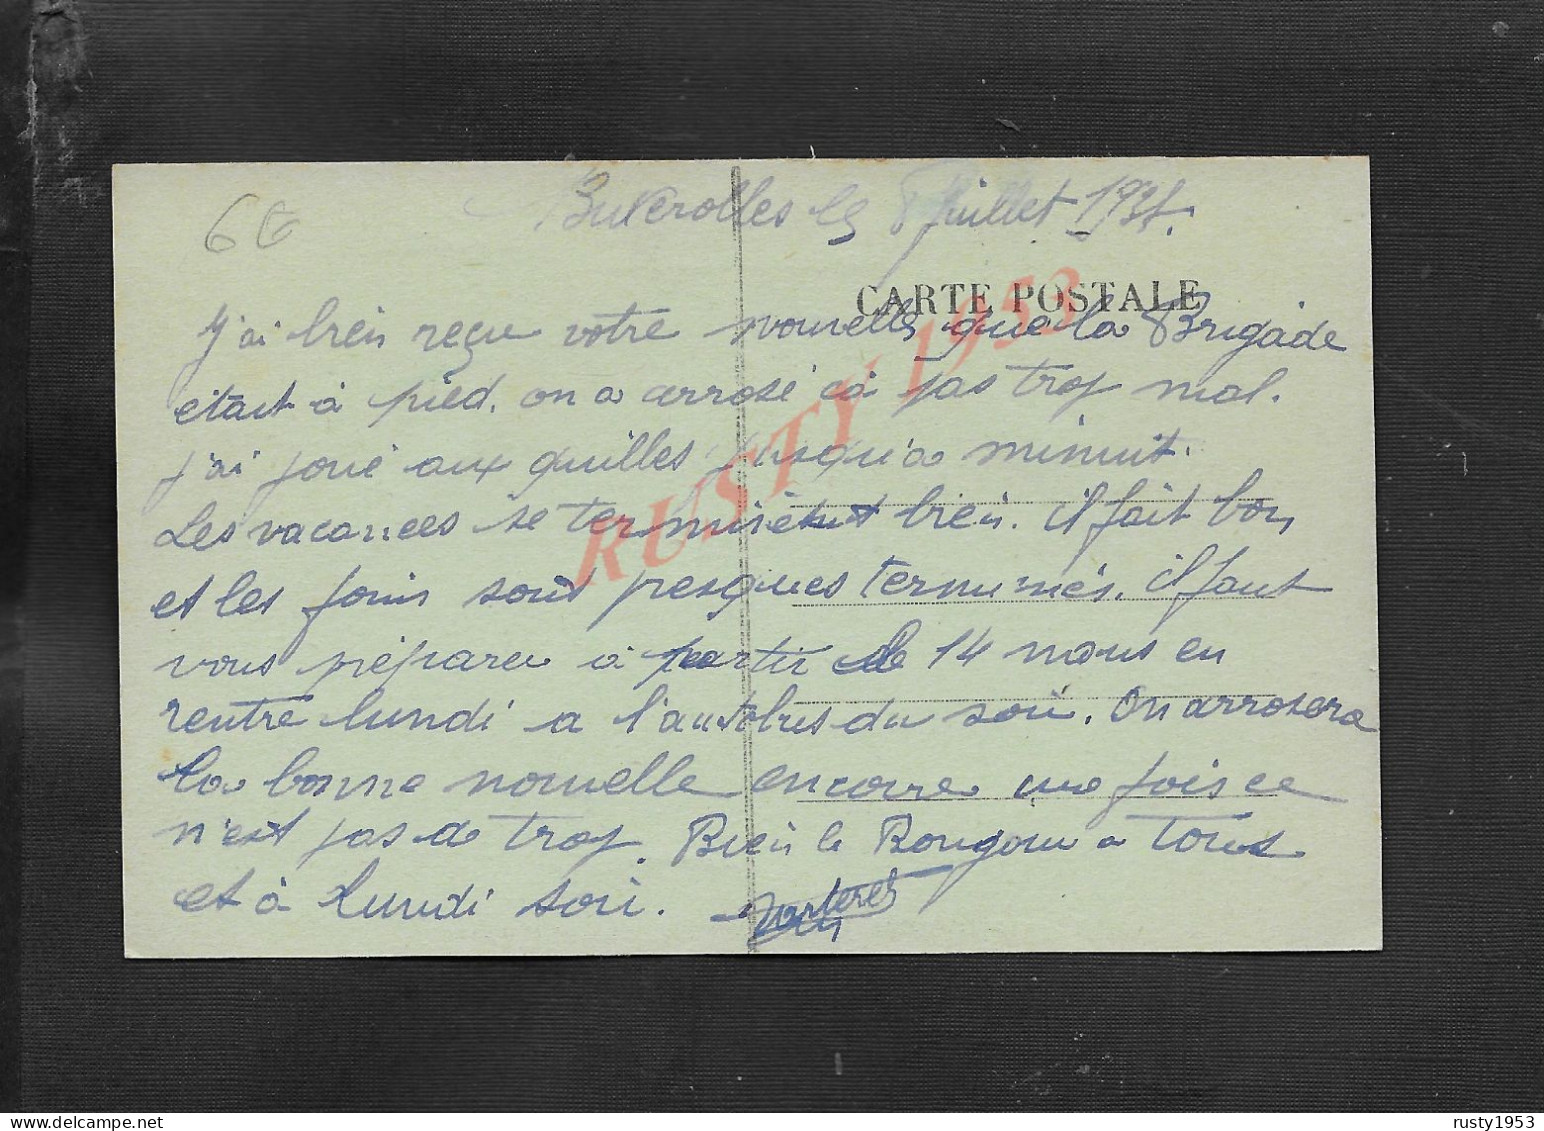 6 €
Buxerolles le 8 Juillet 193
CARTE POSTALE
J'ai bien reçu votre nouvelles que la Brigade
etait à pied. on a arrosé ça pas trop mal.
j'ai joué aux quilles jusqu'a minuit.
Les vacances se terminent bien. il fait bon
et les foins sont presques terminés. il faut
vous préparer à partir de 14 nous en
rentre lundi a l'autobus du soir. On arrosera
la bonne nouvelle encore une fois ce
n'est pas de trop. Bien le Bonjour a Tous
et à Lundi soir.
RUSTY 1953
rusty1953